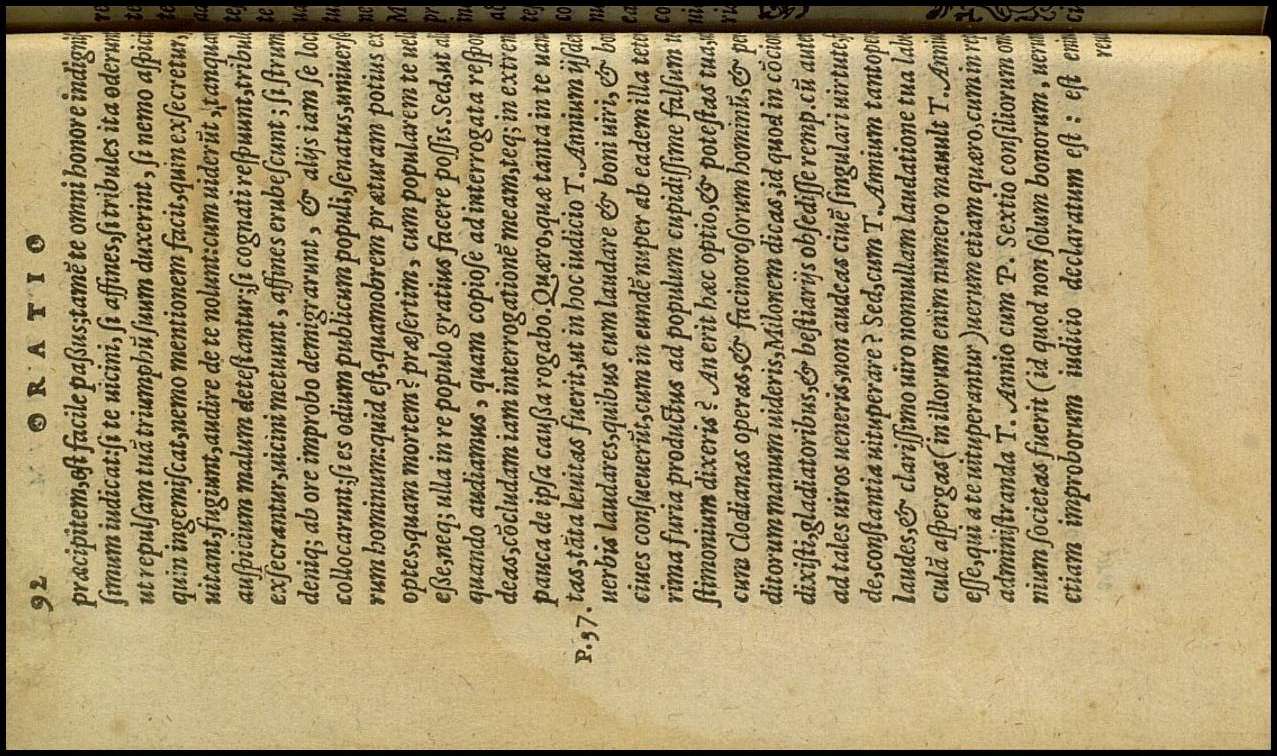 92 ORATIO
præcipitem, est facile paßus; tamē te omni honore indignis
simum iudicat: si te uicini, si affines, si tribules ita oderunt
ut repulsam tuā triumphū suum duxerint, si nemo aspicit
quin ingemiscat, nemo mentionem facit, quin exsecretur,
uitant, fugiunt, audire de te nolunt: cum uiderūt, tanquam
auspicium malum detestantur; si cognati respuunt, tribules
exsecrantur, uicini metuunt, affines erubescunt; si strumæ
deniq; ab ore improbo demigrarunt, & alijs iam se locis
collocarunt; si es odium publicum populi, senatus, uniuerso
rum hominum: quid est, quamobrem præturam potius ex
optes, quam mortem? præsertim, cum popularem te uelis
eße, neq; ulla in re populo gratius facere possis. Sed, ut ali
quando audiamus, quam copiose ad interrogata respon
deas, cōcludam iam interrogationē meam, teq; in extremo
pauca de ipsa caußa rogabo. Quæro, quæ tanta in te uani
P.37. tas, tāta leuitas fuerit, ut in hoc iudicio T. Annium ijsdem
uerbis laudares, quibus eum laudare & boni uiri, & boni
ciues consueuerūt, cum in eundē nuper ab eadem illa teter
rima furia productus ad populum cupidissime falsum te
stimonium dixeris? An erit hæc optio, & potestas tua, ut
cum Clodianas operas, & facinorosorum hominū, & per
ditorum manum uideris, Milonem dicas, id quod in cōcione
dixisti, gladiatoribus, & bestiarijs obsedisse remp. cū autem
ad tales uiros ueneris, non audeas ciuē singulari uirtute, fi
de, constantia uituperare? Sed, cum T. Annium tantopere
laudes, & clarissimo uiro nonnullam laudatione tua labe
culā aspergas (in illorum enim numero mauult T. Annius
esse, qui a te uituperantur) uerum etiam quæro, cum in rep
administranda T. Annio cum P. Sextio consiliorum om
nium societas fuerit (id quod non solum bonorum, uerum
etiam improborum iudicio declaratum est: est enim
reus